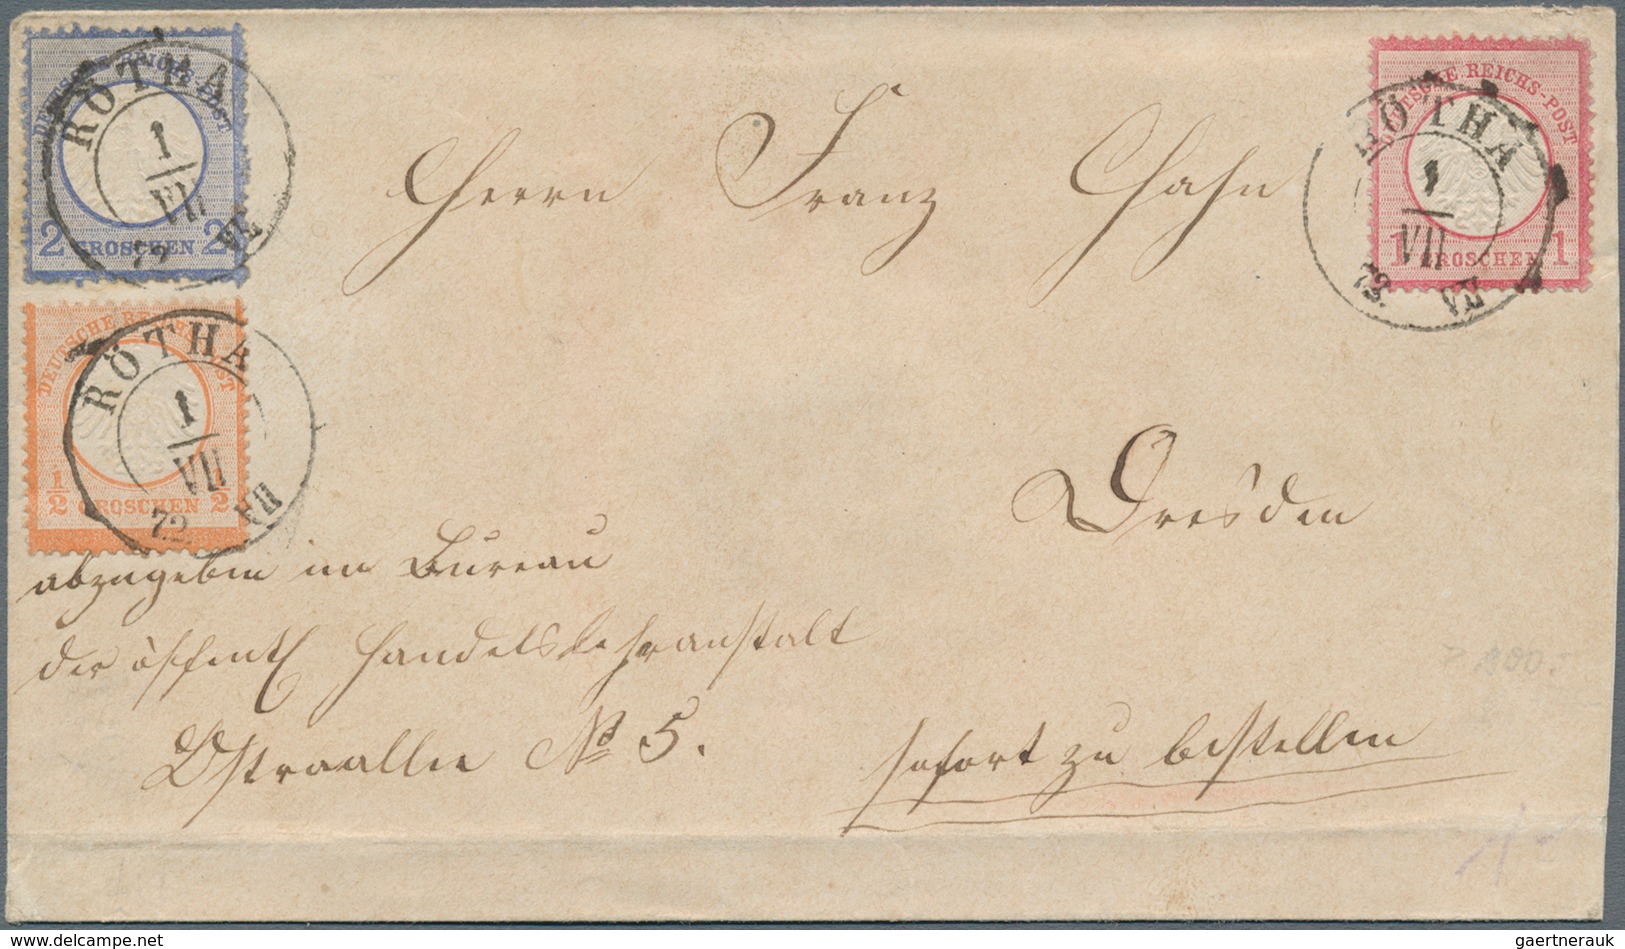 DEUTSCHE REICHS-POST
2 GROSCHEN 2
RÖTHA
1
VII
72
VII
DEUTSCHE REICHS-POST
1 GROSCHEN 1
RÖTHA
1
VII
72.
VII
Herrn Franz Hahn
DEUTSCHE REICHS-POST
1/2 GROSCHEN 1/2
RÖTHA
1
VII
72.
VII
Dresden
abzugeben im Bureau
der öffentl Handelslehranstalt
Ostraallee No 5.
sofort zu bestellen
gaertnerauk